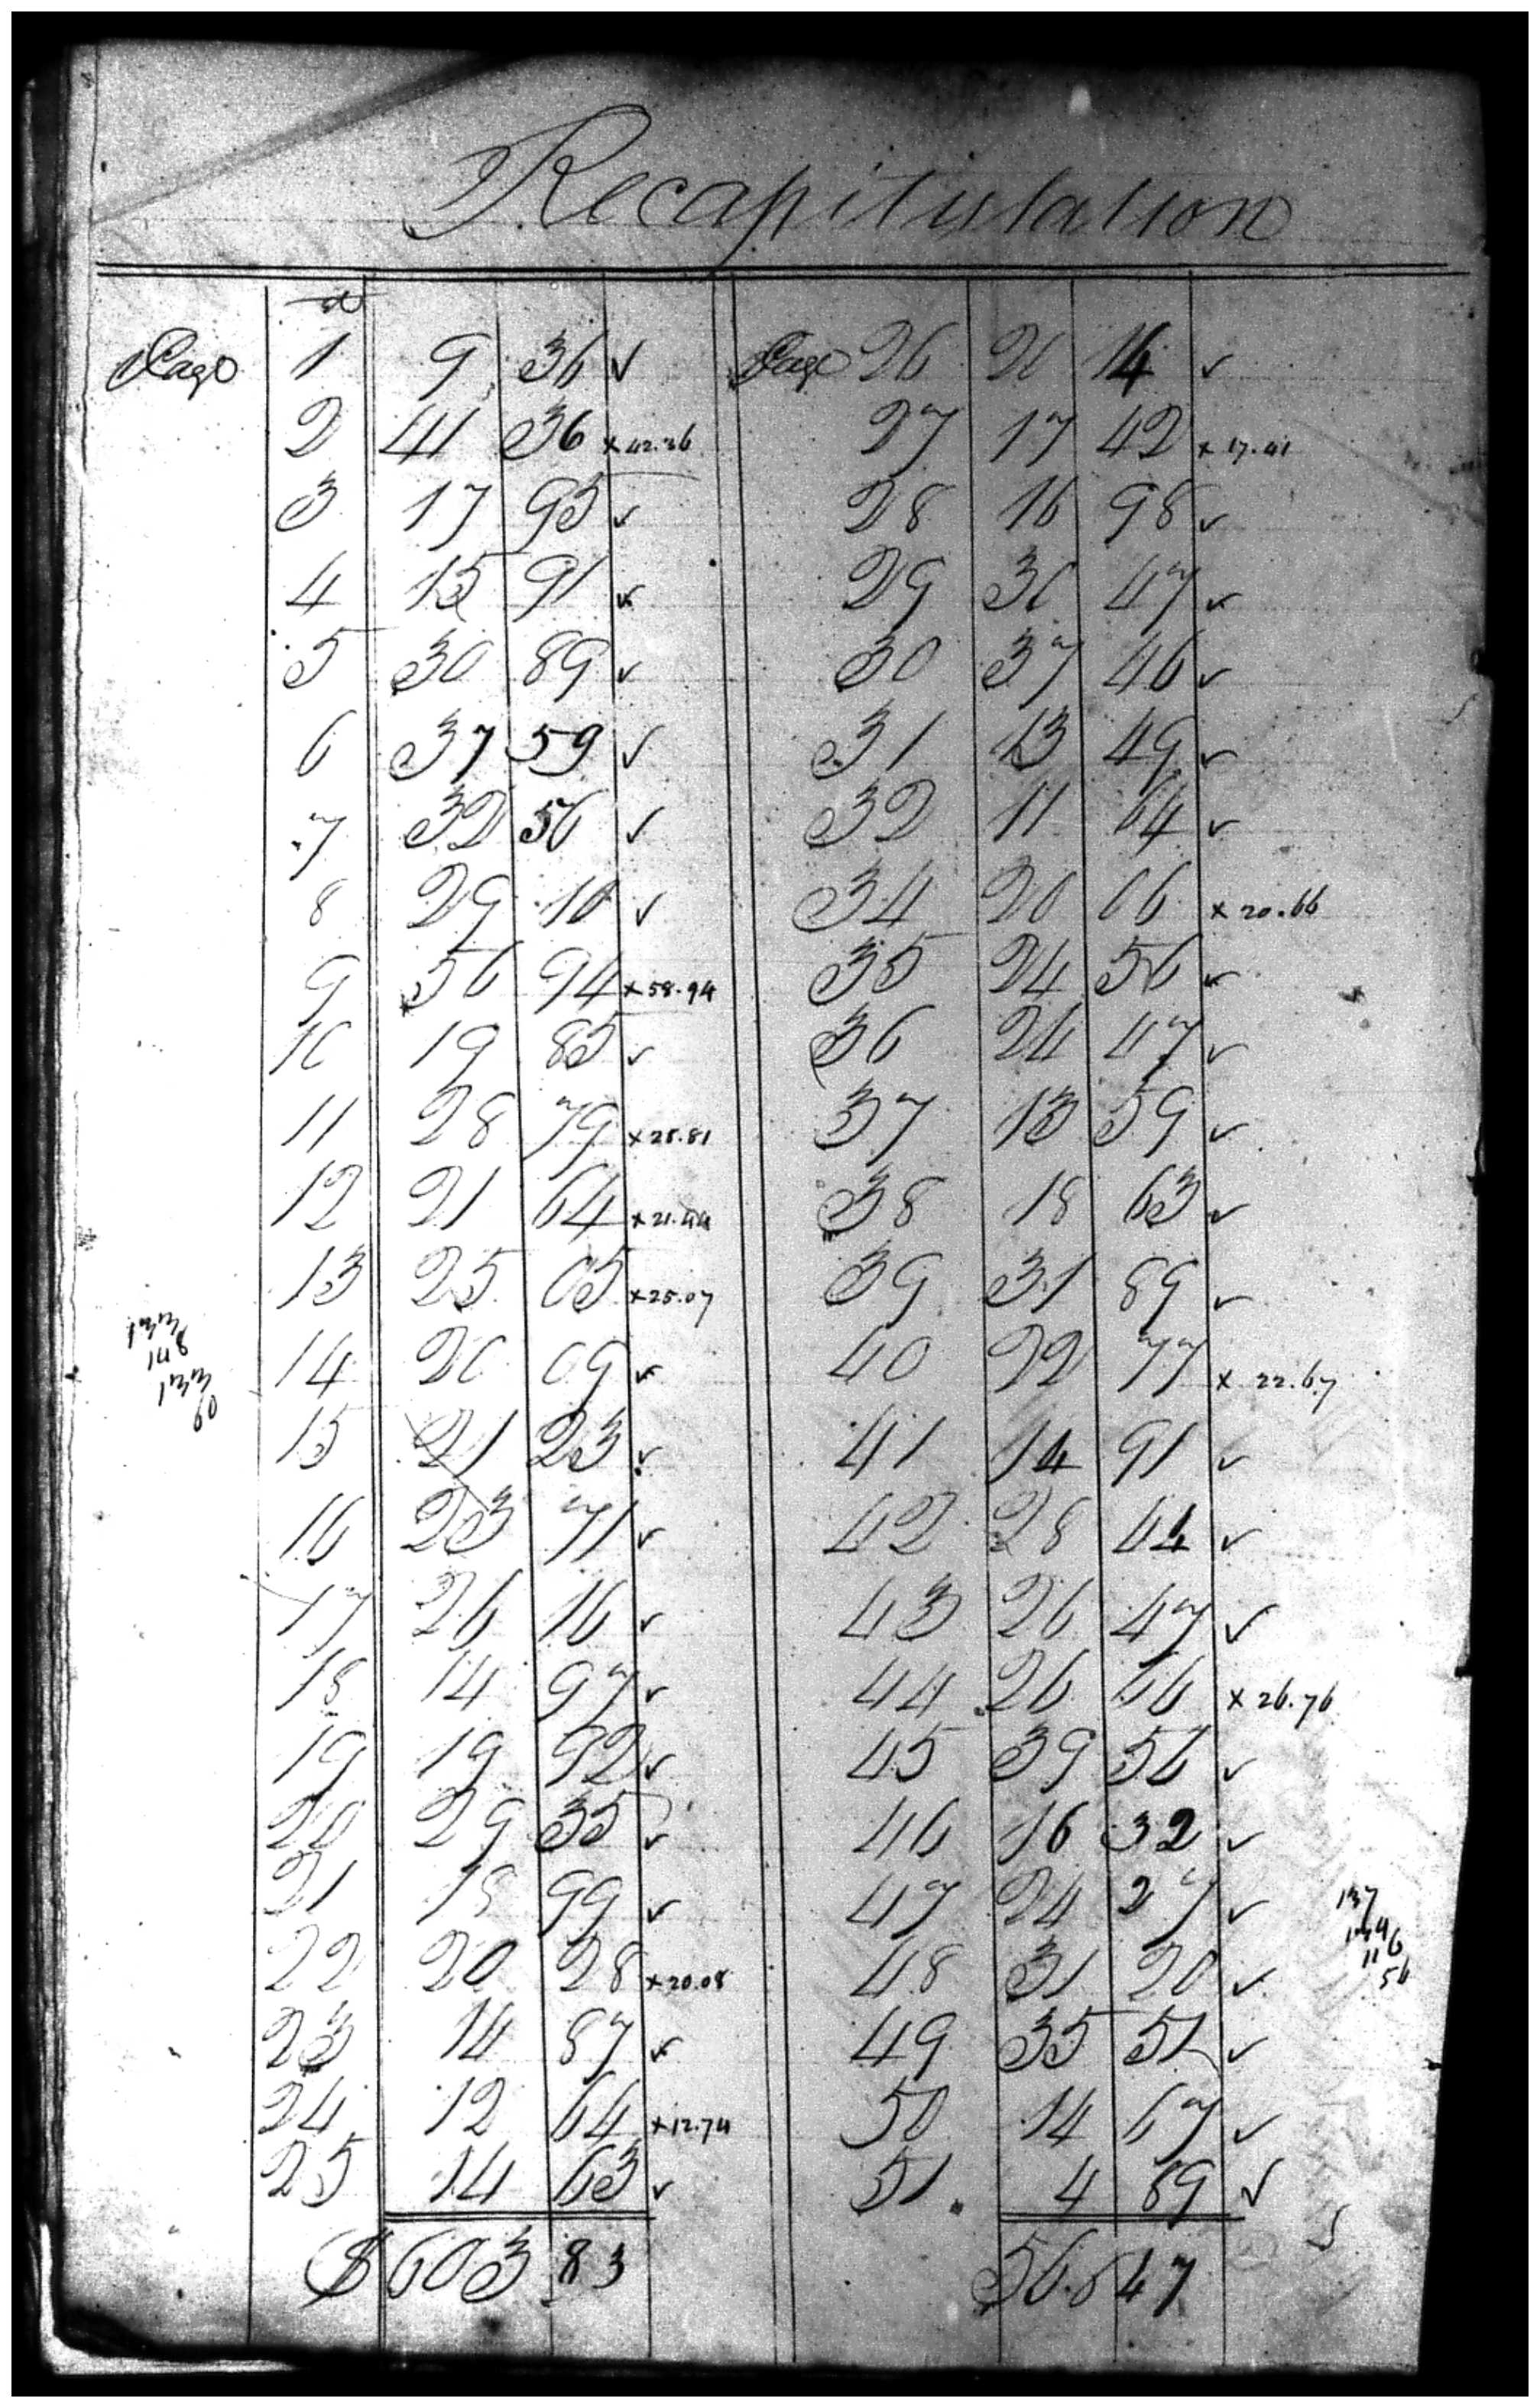 Recapitulation
Page 1 9 36 ✓ Page 26 20 14 ✓
2 41 36 x 42.36 27 17 42 x 17.41
3 17 95 ✓ 28 16 98 ✓
4 15 91 ✓ 29 30 47 ✓
5 30 89 ✓ 30 37 46 ✓
6 37 59 ✓ 31 13 49 ✓
7 32 56 ✓ 32 11 64 ✓
8 29 10 ✓ 34 20 66 x 20.66
9 56 94 x 58.94 35 24 56 ✓
10 19 85 ✓ 36 24 47 ✓
11 28 79 x 28.81 37 13 59 ✓
12 21 64 x 21.44 38 18 63 ✓
13 25 05 x 25.07 39 31 89 ✓
14 20 09 ✓ 40 22 77 x 22.67
15 21 23 ✓ 41 14 91 ✓
16 23 71 ✓ 42 28 44 ✓
17 26 16 ✓ 43 26 47 ✓
18 14 97 ✓ 44 26 66 x 26.76
19 19 92 ✓ 45 39 56 ✓
20 29 35 ✓ 46 16 32 ✓
21 18 99 ✓ 47 24 27 ✓
22 20 28 x 20.08 48 31 20 ✓
23 14 87 ✓ 49 35 51 ✓
24 12 64 x 12.74 50 14 67 ✓
25 14 63 ✓ 51. 4 89 ✓
$ 603 83 568 47
137
116
56